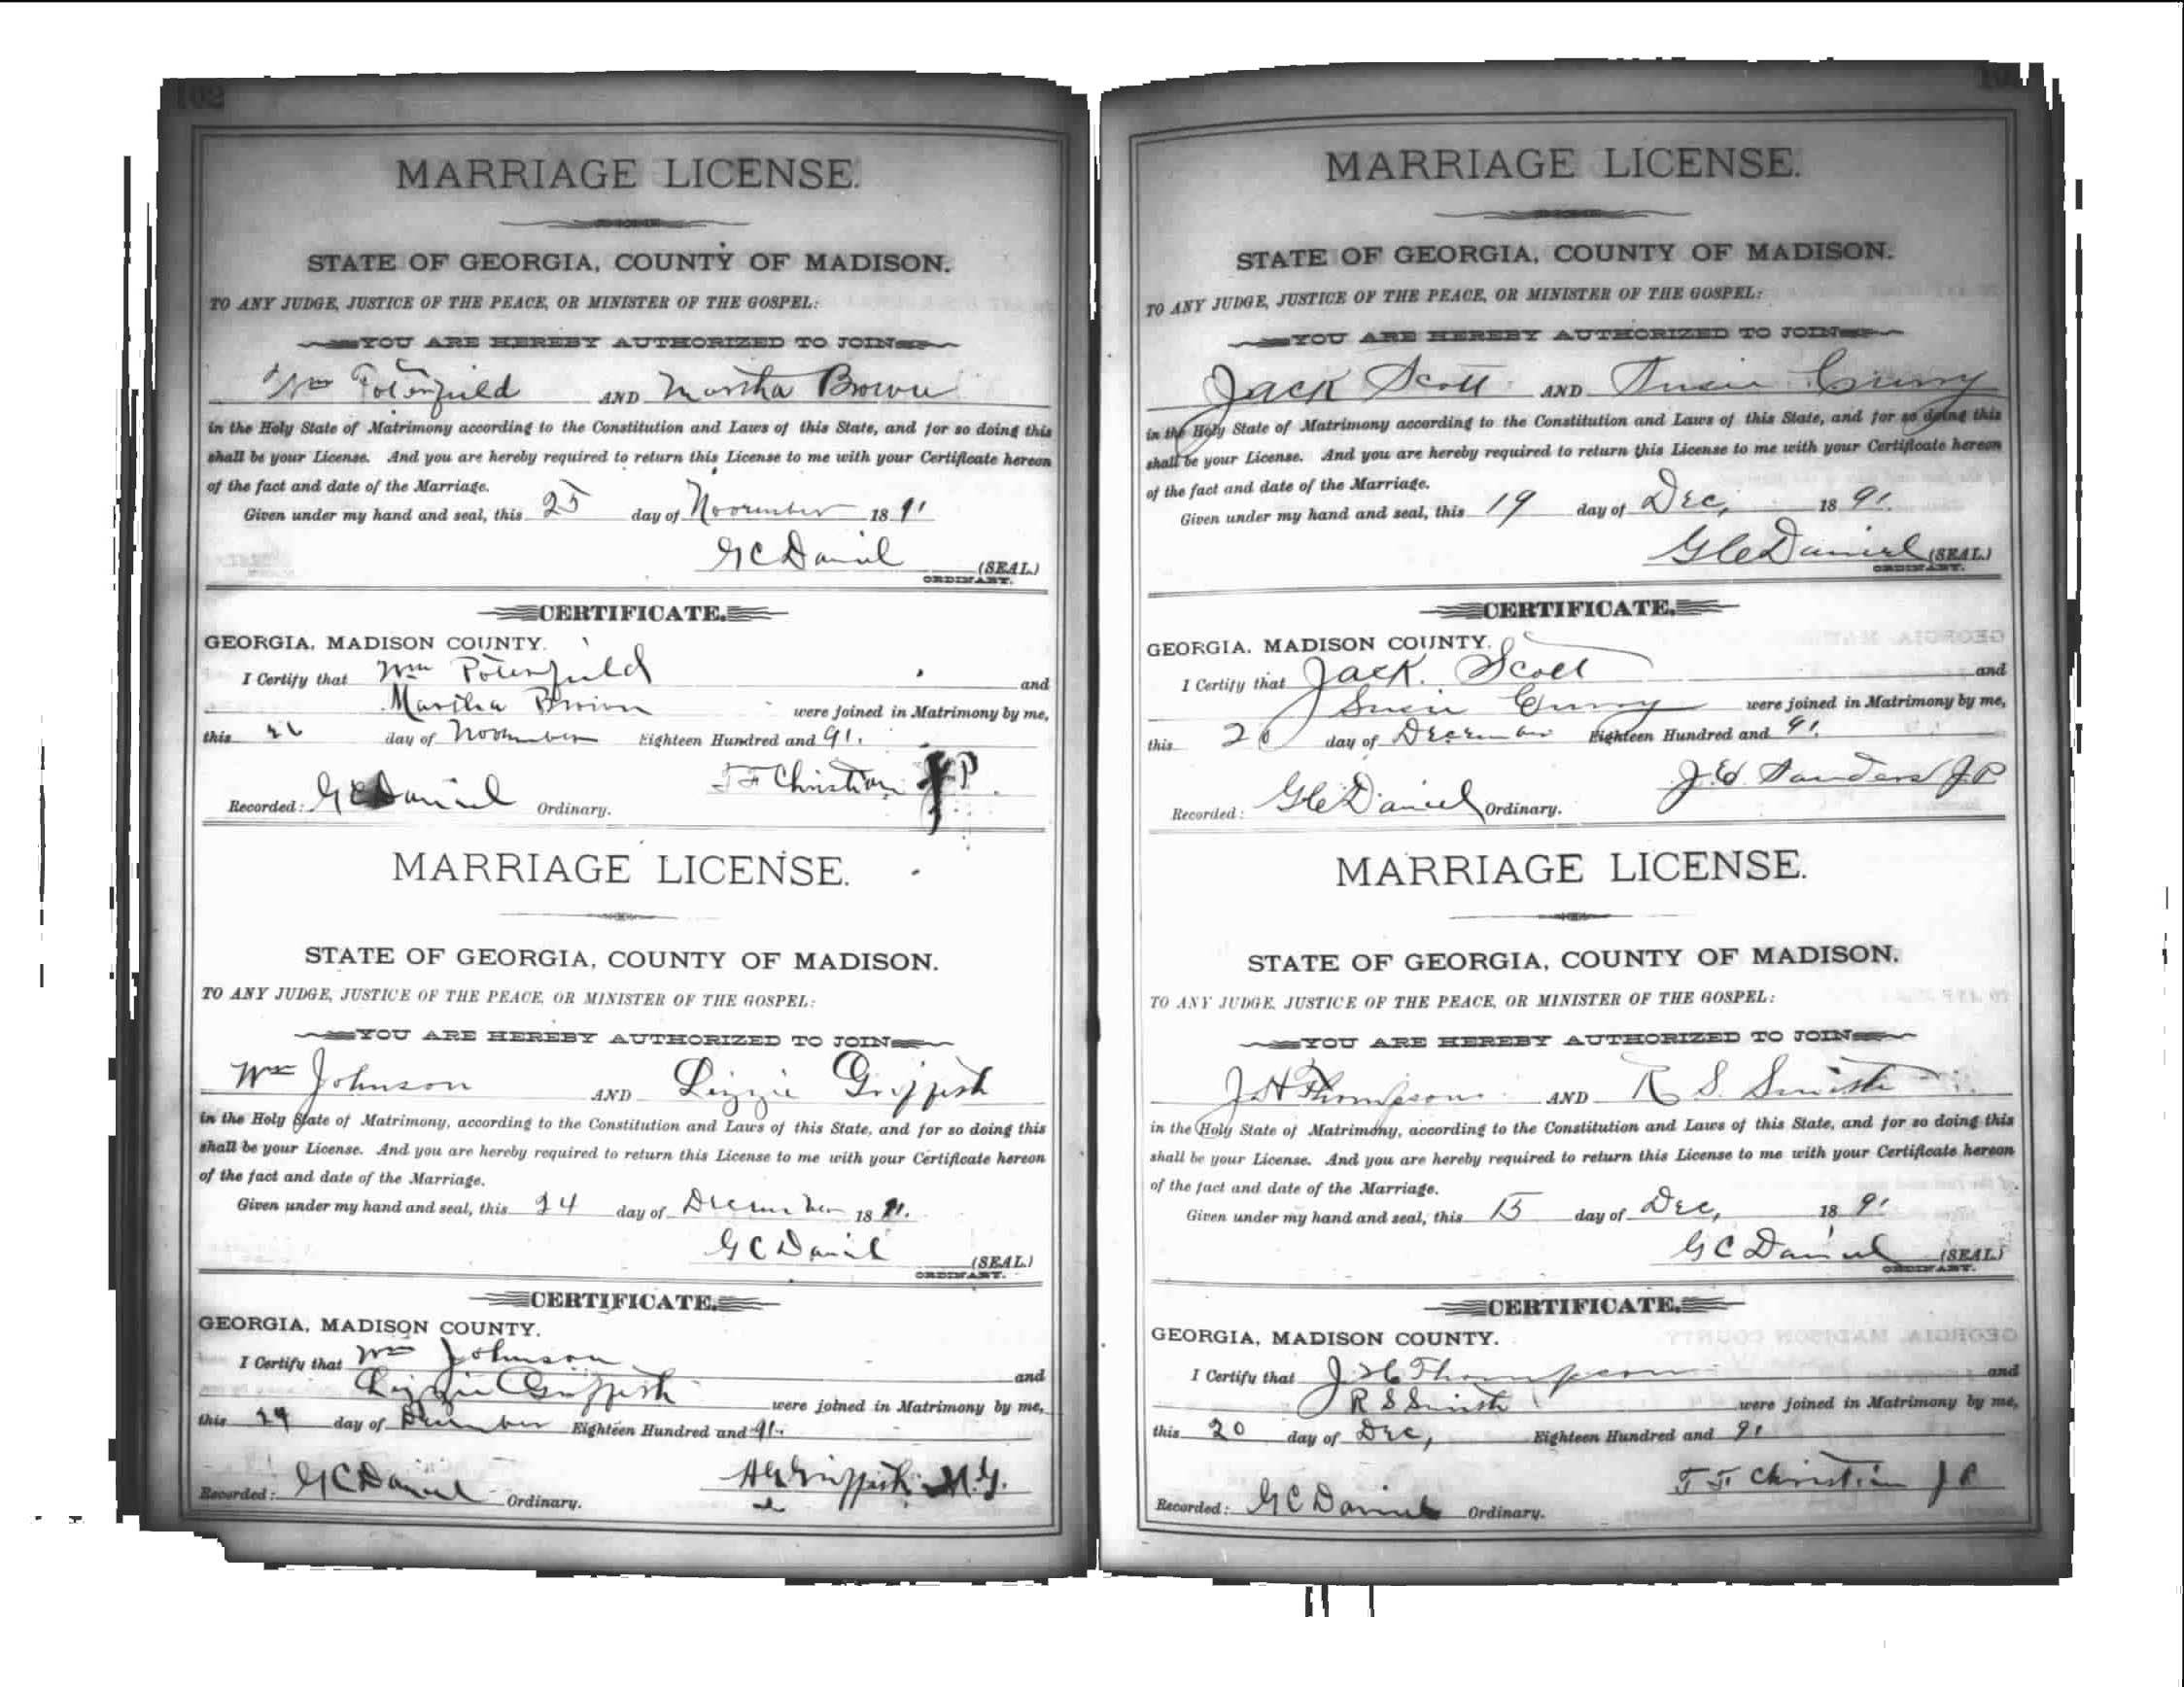 102
MARRIAGE LICENSE.
STATE OF GEORGIA, COUNTY OF MADISON.
TO ANY JUDGE, JUSTICE OF THE PEACE, OR MINISTER OF THE GOSPEL:
YOU ARE HEREBY AUTHORIZED TO JOIN
Wm Poterfield AND Martha Brown
in the Holy State of Matrimony according to the Constitution and Laws of this State, and for so doing this
shall be your License. And you are hereby required to return this License to me with your Certificate hereon
of the fact and date of the Marriage.
Given under my hand and seal, this 25 day of November 1891
G C Daniel (SEAL.)
ORDINARY.
CERTIFICATE.
GEORGIA, MADISON COUNTY.
I Certify that Wm Poterfield and
Martha Brown were joined in Matrimony by me,
this 26 day of November Eighteen Hundred and 91.
T F Christian J P.
Recorded: G C Daniel Ordinary.
MARRIAGE LICENSE.
STATE OF GEORGIA, COUNTY OF MADISON.
TO ANY JUDGE, JUSTICE OF THE PEACE, OR MINISTER OF THE GOSPEL:
YOU ARE HEREBY AUTHORIZED TO JOIN
Wm Johnson AND Lizzie Griffith
in the Holy State of Matrimony, according to the Constitution and Laws of this State, and for so doing this
shall be your License. And you are hereby required to return this License to me with your Certificate hereon
of the fact and date of the Marriage.
Given under my hand and seal, this 24 day of December 1891.
G C Daniel (SEAL.)
ORDINARY.
CERTIFICATE.
GEORGIA, MADISON COUNTY.
I Certify that Wm Johnson and
Lizzie Griffith were joined in Matrimony by me,
this 24 day of December Eighteen Hundred and 91.
Griffith M.G.
Recorded: G C Daniel Ordinary.
MARRIAGE LICENSE.
STATE OF GEORGIA, COUNTY OF MADISON.
TO ANY JUDGE, JUSTICE OF THE PEACE, OR MINISTER OF THE GOSPEL:
YOU ARE HEREBY AUTHORIZED TO JOIN
Jack Scott AND Susie Curry
in the Holy State of Matrimony according to the Constitution and Laws of this State, and for so doing this
shall be your License. And you are hereby required to return this License to me with your Certificate hereon
of the fact and date of the Marriage.
Given under my hand and seal, this 19 day of Dec, 1891.
G C Daniel (SEAL.)
ORDINARY.
CERTIFICATE.
GEORGIA, MADISON COUNTY.
I Certify that Jack. Scott and
Susie Curry were joined in Matrimony by me,
this 20 day of December Eighteen Hundred and 91.
J. W. Sanders J.P.
Recorded: G C Daniel Ordinary.
MARRIAGE LICENSE.
STATE OF GEORGIA, COUNTY OF MADISON.
TO ANY JUDGE, JUSTICE OF THE PEACE, OR MINISTER OF THE GOSPEL:
YOU ARE HEREBY AUTHORIZED TO JOIN
J H Thompson AND R S. Smith
in the Holy State of Matrimony, according to the Constitution and Laws of this State, and for so doing this
shall be your License. And you are hereby required to return this License to me with your Certificate hereon
of the fact and date of the Marriage.
Given under my hand and seal, this 15 day of Dec, 1891
G C Daniel (SEAL.)
ORDINARY.
CERTIFICATE.
GEORGIA, MADISON COUNTY.
I Certify that J H Thompson and
R S Smith were joined in Matrimony by me,
this 20 day of Dec, Eighteen Hundred and 91
T F Christian J P
Recorded: G C Daniel Ordinary.